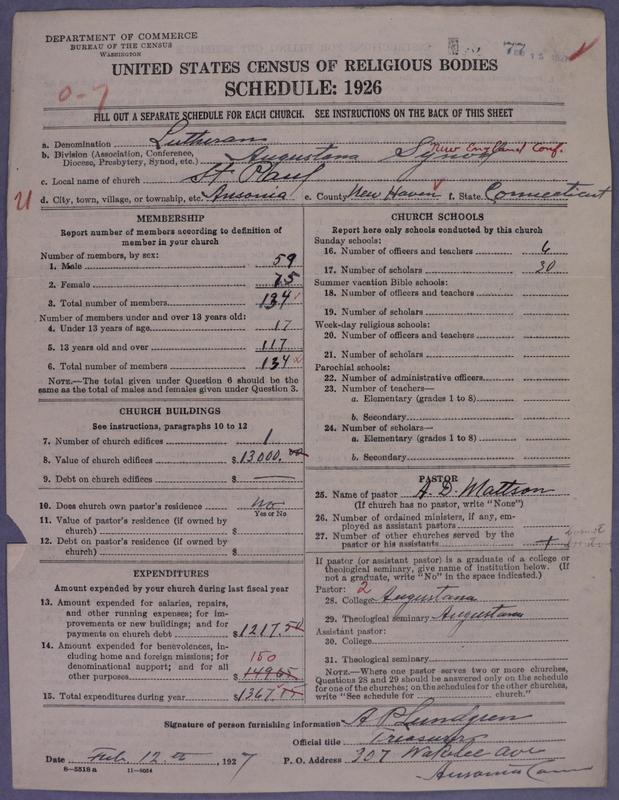 DEPARTMENT OF COMMERCE
BUREAU OF THE CENSUS
WASHINGTON
UNITED STATES CENSUS OF RELIGIOUS BODIES
SCHEDULE: 1926
0-7
FILL OUT A SEPARATE SCHEDULE FOR EACH CHURCH. SEE INSTRUCTIONS ON THE BACK OF THIS SHEET
a. Denomination Lutheran
b. Division (Association, Conference, Diocese, Presbytery, Synod, etc.) Augustana Synod New England Conf.
c. Local name of church St Paul
d. City, town, village, or township, etc. Ansonia e. County New Haven f. State Connecticut
MEMBERSHIP
Report number of members according to definition of
member in your church
Number of members, by sex:
1. Male 59
2. Female 75
3. Total number of members 134
Number of members under and over 13 years old:
4. Under 13 years of age 17
5. 13 years old and over 117
6. Total number of members 134
NOTE.—The total given under Question 6 should be the
same as the total of males and females given under Question 3.
CHURCH BUILDINGS
See instructions, paragraphs 10 to 12
7. Number of church edifices 1
8. Value of church edifices $13000.00
9. Debt on church edifices $ —
10. Does church own pastor's residence? No
Yes or No
11. Value of pastor's residence (if owned by
church) $
12. Debt on pastor's residence (if owned by
church) $
EXPENDITURES
Amount expended by your church during last fiscal year
13. Amount expended for salaries, repairs,
and other running expenses; for im-
provements or new buildings; and for
payments on church debt $1217.50
14. Amount expended for benevolences, in-
cluding home and foreign missions; for
denominational support; and for all
other purposes 150 $149.65
15. Total expenditures during year $1367
CHURCH SCHOOLS
Report here only schools conducted by this church
Sunday schools:
16. Number of officers and teachers 6
17. Number of scholars 30
Summer vacation Bible schools:
18. Number of officers and teachers
19. Number of scholars
Week-day religious schools:
20. Number of officers and teachers
21. Number of scholars
Parochial schools:
22. Number of administrative officers
23. Number of teachers—
a. Elementary (grades 1 to 8)
b. Secondary
24. Number of scholars—
a. Elementary (grades 1 to 8)
b. Secondary
PASTOR
25. Name of pastor A. D. Mattson
(If church has no pastor, write "None")
26. Number of ordained ministers, if any, em-
ployed as assistant pastors
27. Number of other churches served by the
pastor or his assistants
If pastor (or assistant pastor) is a graduate of a college or
theological seminary, give name of institution below. (If
not a graduate, write "No" in the space indicated.)
Pastor: 2
28. College Augustana
29. Theological seminary Augustana
Assistant pastor:
30. College
31. Theological seminary
NOTE.—Where one pastor serves two or more churches,
Questions 28 and 29 should be answered only on the schedule
for one of the churches; on the schedules for the other churches,
write "See schedule for church."
Signature of person furnishing information A P Lundgren
Official title Treasurer
Date Feb. 12th, 1927 P. O. Address 307 Wakelee Ave
Ansonia Conn
8-5518a 11-8054